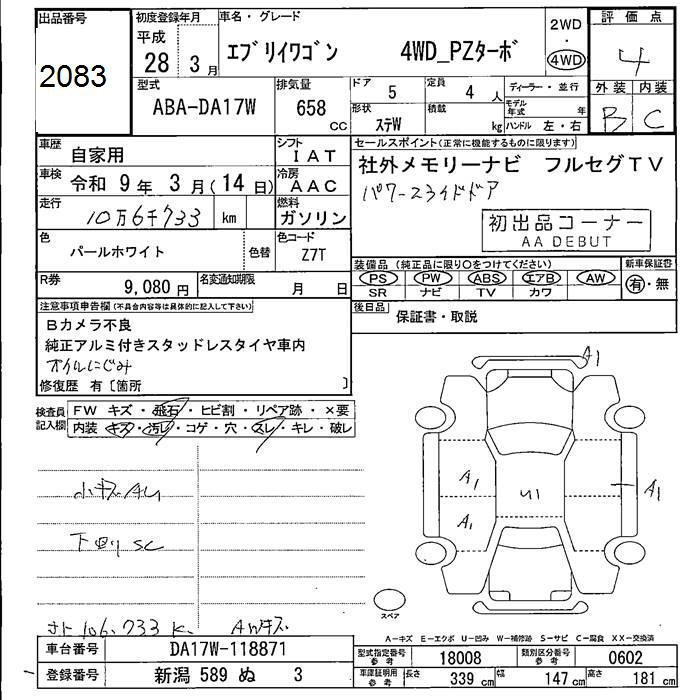 出品番号
2083
初度登録年月
平成
28 3月
車名・グレード
エブリイワゴン 4WD_PZターボ
2WD
・
4WD
評価点
4
外装 内装
B C
型式
ABA-DA17W
排気量
658
CC
ドア
5
定員
4 人
ディーラー・並行
形状
ステW
積載
kg
モデル年式 年
ハンドル 左・右
車歴
自家用
シフト
IAT
車検
令和 9年 3月(14日)
冷房
AAC
走行
10万6千733 km
燃料
ガソリン
色
パールホワイト
色替
色コード
Z7T
R券
9,080円
名変通知期限
月 日
セールスポイント(正常に機能するものに限ります)
社外メモリーナビ フルセグTV
パワースライドドア
初出品コーナー
AA DEBUT
装備品(純正品に限り〇をつけてください)
PS PW ABS エアB AW
SR ナビ TV カワ
新車保証書
有・無
後日品
保証書・取説
注意事項申告欄(不具合内容等は具体的に記入して下さい)
Bカメラ不良
純正アルミ付きスタッドレスタイヤ車内
オイルにじみ
修復歴 有〔箇所 〕
検査員
記入欄
FW キズ・飛石・ヒビ割・リペア跡・×要
内装 キズ・汚レ・コゲ・穴・スレ・キレ・破レ
小キズAU
下回りSC
106,733K AWキズ
A1
A1
A1
U1
A1
スペア
A-キズ E-エクボ U-凹み W-補修跡 S-サビ C-腐食 XX-交換済
車台番号
DA17W-118871
登録番号
新潟 589 ぬ 3
型式指定番号
参考
18008
類別区分番号
参考
0602
車庫証明用
参考
長さ
339 cm
幅
147 cm
高さ
181 cm